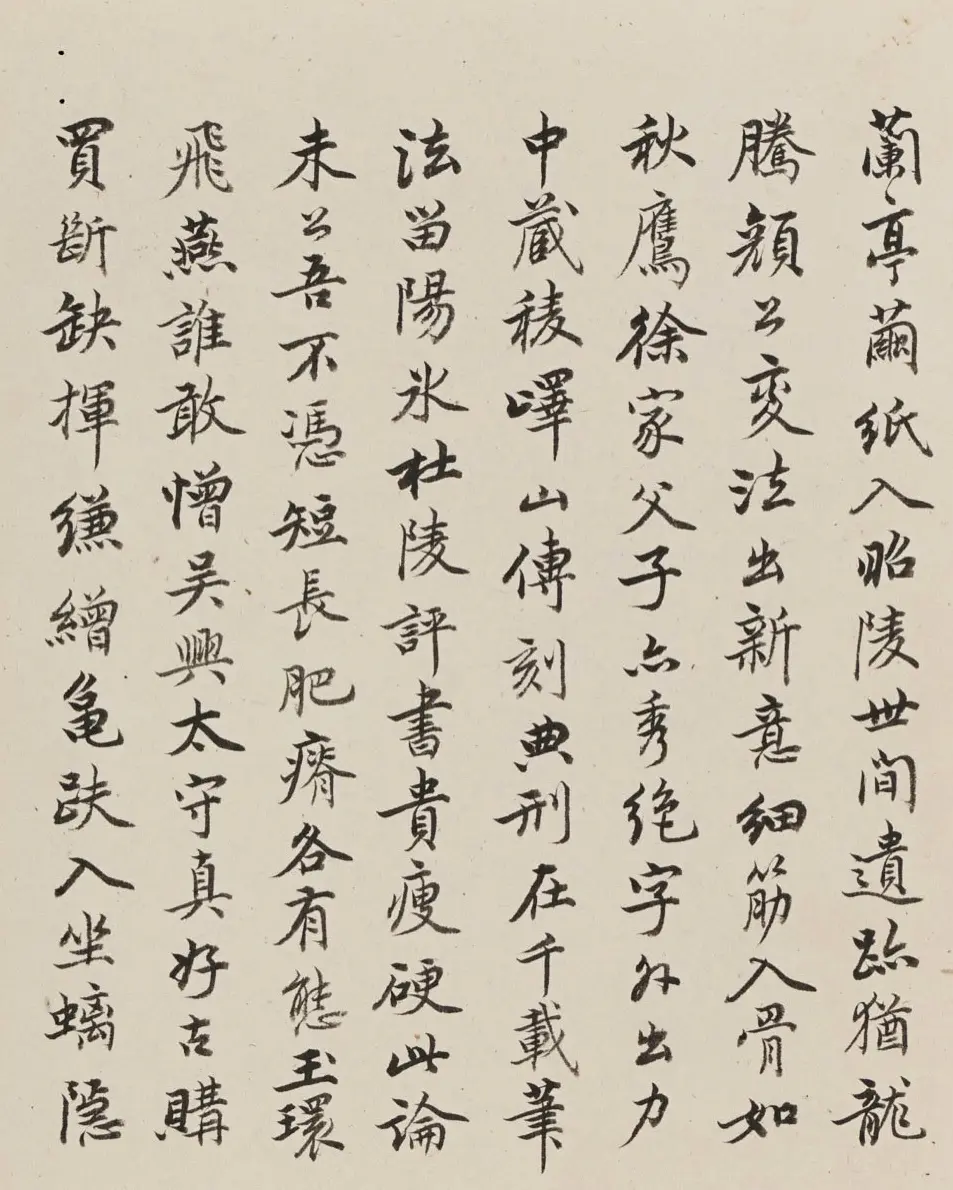 蘭亭繭紙入昭陵世間遺跡猶龍
騰顔公変法出新意細筋入骨如
秋鷹徐家父子亦秀絶字外出力
中蔵稜嶧山傳刻典刑在千載筆
法㽞陽氷杜陵評書貴瘦硬此論
未公吾不憑短長肥瘠各有態玉環
飛燕誰敢憎吴興太守真好古購
買斷缺揮縑繒亀趺入坐螭隱